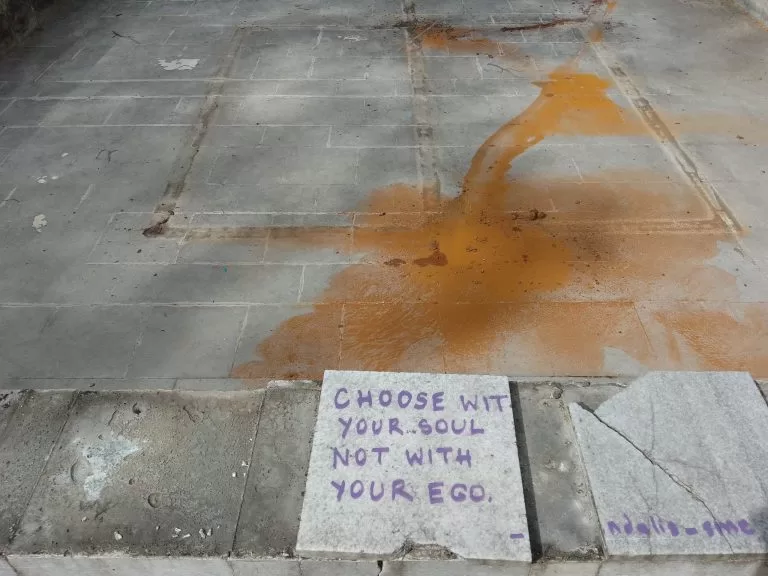 CHOOSE WIT
YOUR..SOUL
NOT WITH
YOUR EGO.